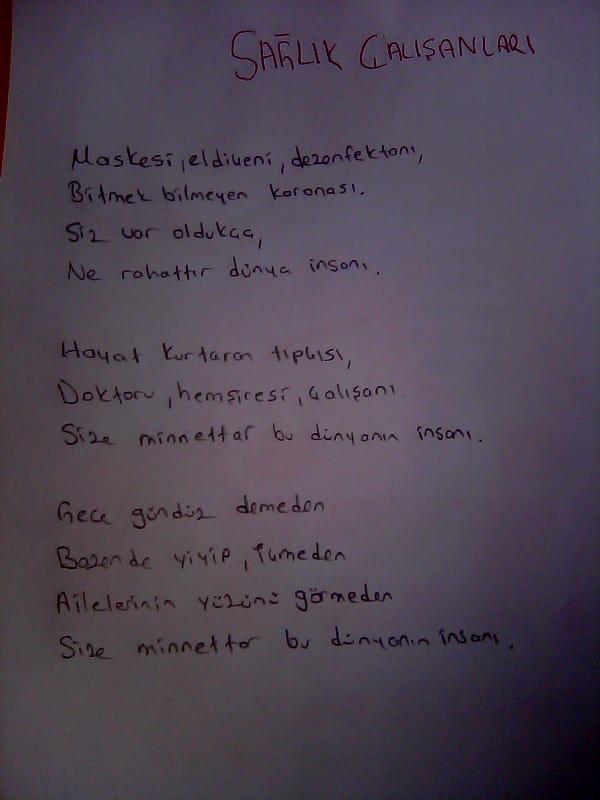 SAĞLIK ÇALIŞANLARI
Maskesi, eldiveni, dezenfektanı,
Bitmek bilmeyen koronası.
Siz var oldukça,
Ne rahattır dünya insanı.
Hayat kurtaran tıpçısı,
Doktoru, hemşiresi, çalışanı
Size minnettar bu dünyanın insanı.
Gece gündüz demeden
Bazende yiyip, içmeden
Ailelerinin yüzünü görmeden
Size minnettar bu dünyanın insanı.